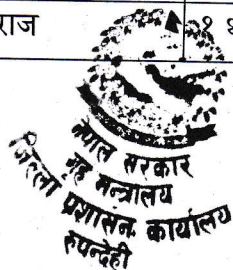 राज
नेपाल सरकार
गृह मन्त्रालय
जिल्ला प्रशासन कार्यालय
रुपन्देही